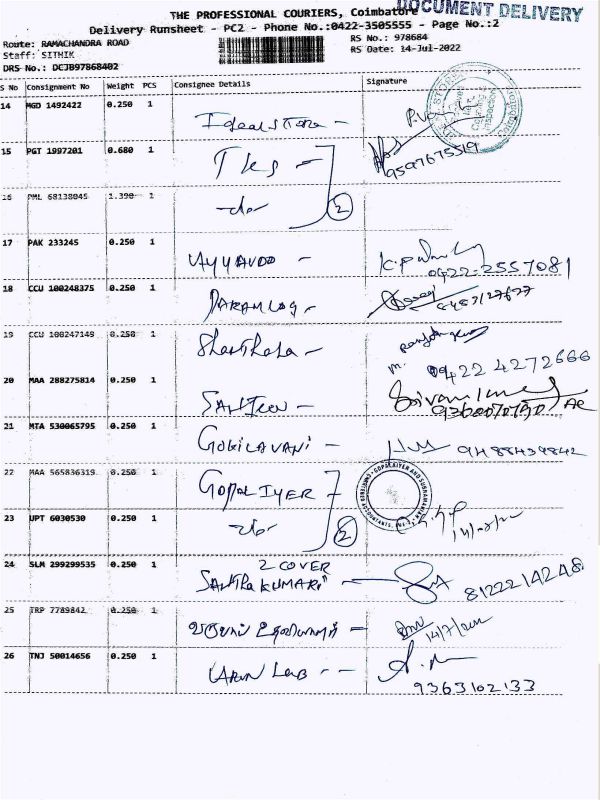 THE PROFESSIONAL COURIERS, Coimbatore
DOCUMENT DELIVERY
Delivery Runsheet - PC2 - Phone No.:0422-3505555 - Page No.:2
Route: RAMACHANDRA ROAD
RS No.: 978684
Staff: SITHIK
RS Date: 14-Jul-2022
DRS No.: DCJB97868402
S No Consignment No Weight PCS Consignee Details Signature
14 MGD 1492422 0.250 1 Ideal Store -
15 PGT 1997201 0.680 1 TKS - 9597675319
16 PML 68138045 1.390 1 -do- 2
17 PAK 233245 0.250 1 AYYAVOO - 0422-2557081
18 CCU 100248375 0.250 1 PARAMLOG -
19 CCU 100247149 0.250 1 - 0422 4272666
20 MAA 288275814 0.250 1
21 MTA 530065795 0.250 1 GOKILAVANI - 9488439842
22 MAA 565836319 0.250 1 GOPAL IYER
23 UPT 6030530 0.250 1 -do- 2
24 SLM 299299535 0.250 1 2 COVER
SANTHA KUMARI - 8122214248
25 TRP 7789842 0.250 1 - 14/7/2022
26 TNJ 50014656 0.250 1 VARUN LAB - -
9363102133